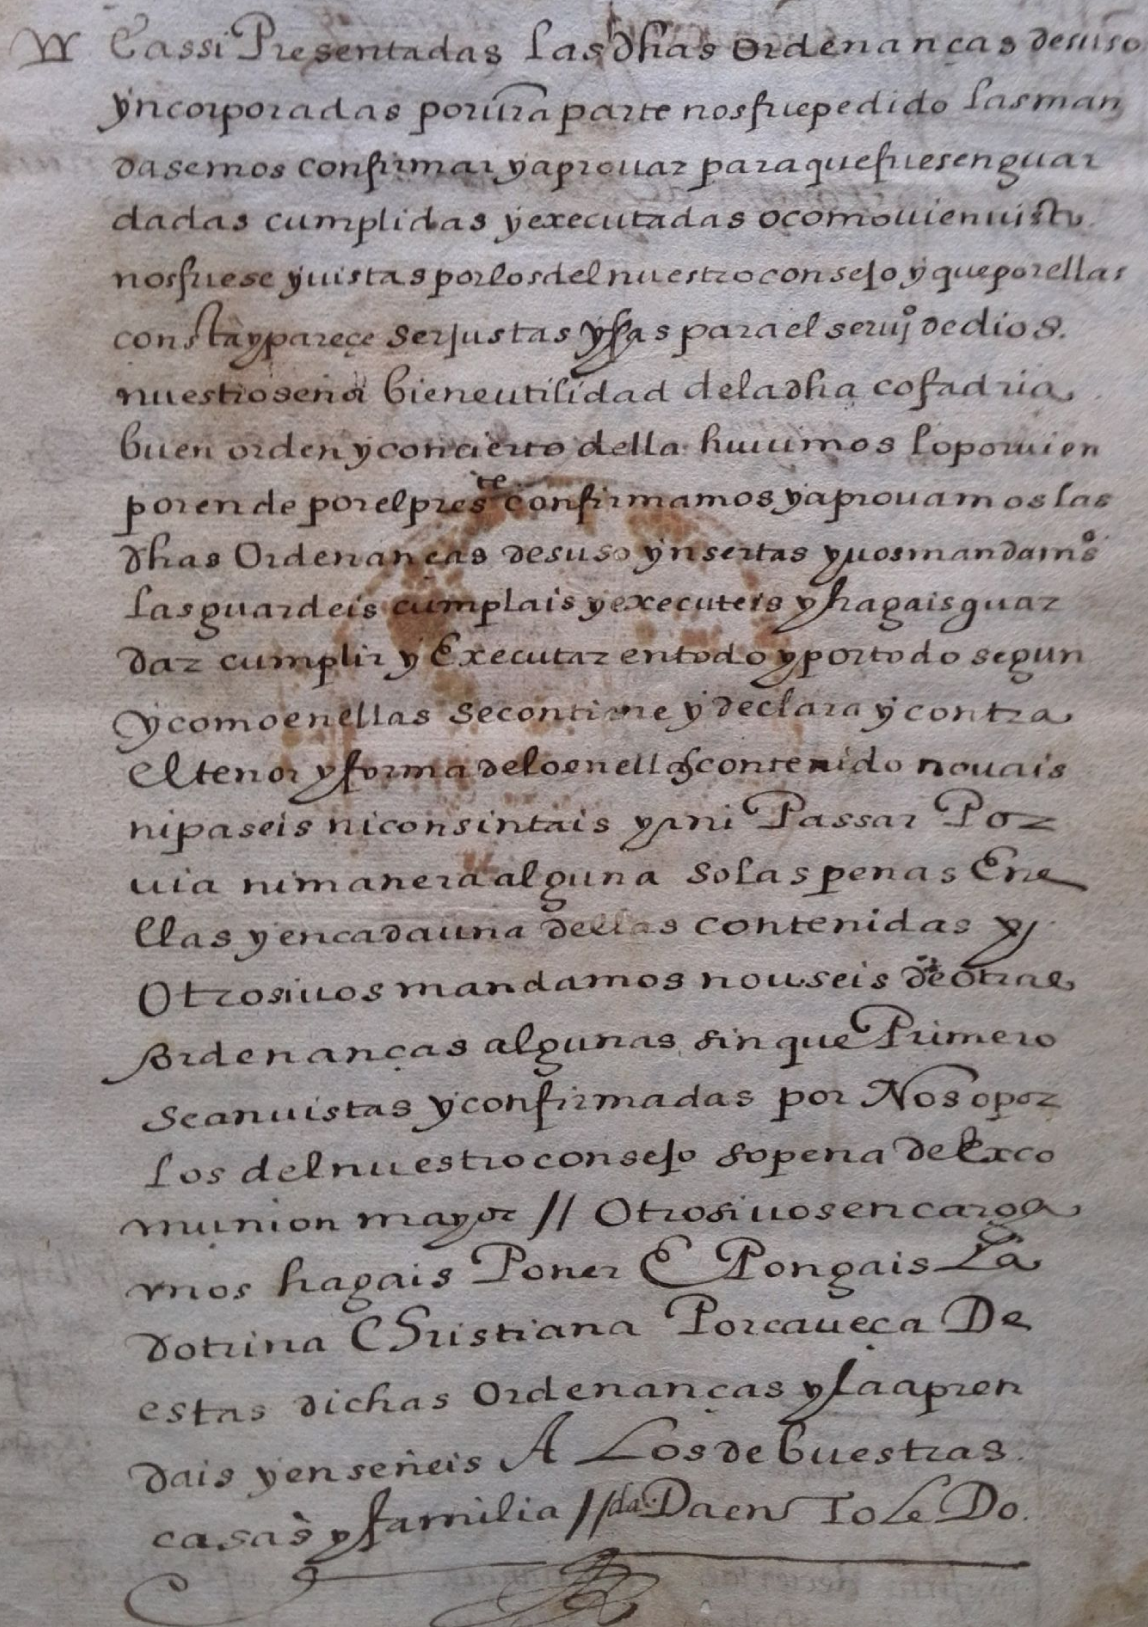 Eassi Presentadas las dhas ordenanças desuso
yncorporadas por vra parte nos fue pedido las man
dasemos confirmar y aprouar para que fuesen guar
dadas cumplidas y executadas o como uien uisto
nos fuese y uistas por los del nuestro consejo y que por ellas
consta y pareçe ser justas y sas para el seruio de dios.
nuestro señor bien e utilidad de la dha cofadria
buen orden y concierto della huuimos lo por uien
por ende por el preste confirmamos y aprouamos las
dhas Ordenanças desuso ynsertas y uos mandamos
las guardeis cumplais y executeis y hagais guar
dar cumplir y Executar en todo y por todo segun
y como en ellas se contiene y declara y contra
el tenor y forma de lo en ellas contenido no uais
ni paseis ni consintais yr ni Passar Por
uia ni manera alguna so las penas En e
llas y en cada una dellas contenidas y
Otrosi uos mandamos no useis de otras
ordenanças algunas sin que Primero
sean uistas y confirmadas por Nos o por
los del nuestro consejo so pena de Exco
munion mayor // Otrosi uos encarga
mos hagais Poner E Pongais La
dotrina Christiana Por caueça De
estas dichas Ordenanças y la apren
dais y enseñeis A Los de buestras
casas y familia // da. Da en ToLeDo.